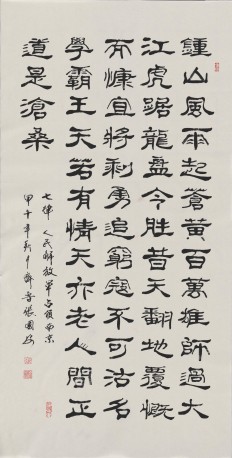 鍾山風雨起蒼黃百萬雄師過大
江虎踞龍盤今勝昔天翻地覆慨
而慷宜將剩勇追窮寇不可沽名
學霸王天若有情天亦老人間正
道是滄桑
七律 人民解放軍占領南京
甲午年